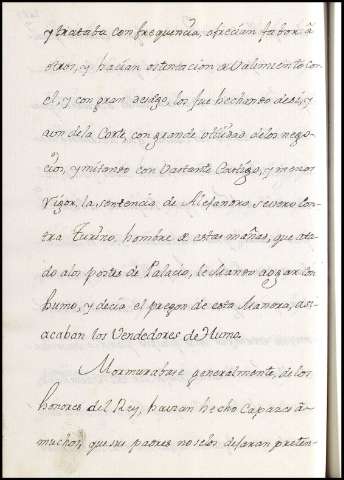 y trataba con frequencia, ofrecian fabor â
otros, y hacian ostentacion de Valimiento con
el, y con gran sociego, los fue hechando de si, y
aun de la Corte, con grande utilidad de los nego-
cios, y imitando con Bastante Castigo, y menos
rigor, la sentencia de Alejandro, severo con-
tra Turino, hombre de estas mañas, que ata-
do a los postes de Palacio, le Mando aogar con
humo, y decia el pregon de esta Manera, asi
acaban los Vendedores de Humo.
Mormurabase generalmente, de los
honores del Rey, havian hecho Capaces â
muchos, que sus padres no se los desearan preten-